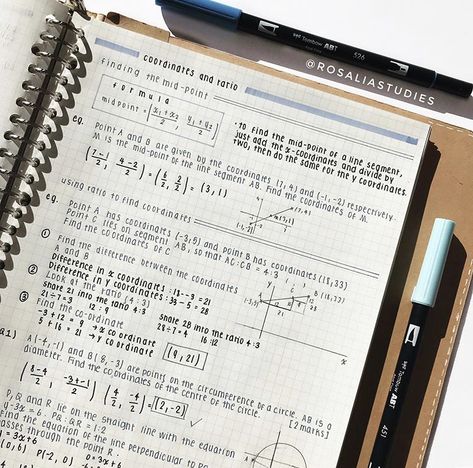 coordinates and ratio
finding the mid-point
formula
midpoint = (x₁+x₂/2, y₁+y₂/2)
:to find the mid-point of a line segment,
just add the x-coordinates and divide by
two, then do the same for the y coordinates.
eg. Point A and B are given by the coordinates (7, 4) and (-1, -2) respectively.
M is the mid-point of the line segment AB. Find the coordinates of M.
(7-1/2, 4-2/2) = (6/2, 2/2) = (3, 1)
using ratio to find coordinates
eg. Point A has coordinates (-3,5) and point B has coordinates (18,33)
Point C lies on segment AB, so that AC:CB = 4:3
Find the coordinates of C.
① Find the difference between the coordinates
A and B
Difference in x coordinates: 18--3 = 21
Difference in y coordinates: 33-5 = 28
② Look at the ratio (4:3)
share 21 into the ratio 4:3
21÷7=3 12:9
share 28 into the ratio 4:3
28÷7=4 16:12
③ Find the co-ordinate
-3+12 = 9 → x co-ordinate
5+16 = 21 → y coordinate
(9, 21)
B (18, 33)
(-3,5)
x
a1) A(-4,-1) and B(8,-3) are points on the circumference of a circle. AB is a
diameter. Find the coordinates of the centre of the circle. [2 marks]
(8-4/2, -3+-1/2) (4/2, -4/2) = (2,-2)
P, Q and R lie on the straight line with the equation
y-3x=6. PQ:QR = 1:2
Find the equation of the line perpendicular to
passes through the point R.
y=3x+6
(0, 6) P(-2, 0) 0=3x+6
@ROSALIASTUDIES
Tombow ABT 526
Tombow ABT 451